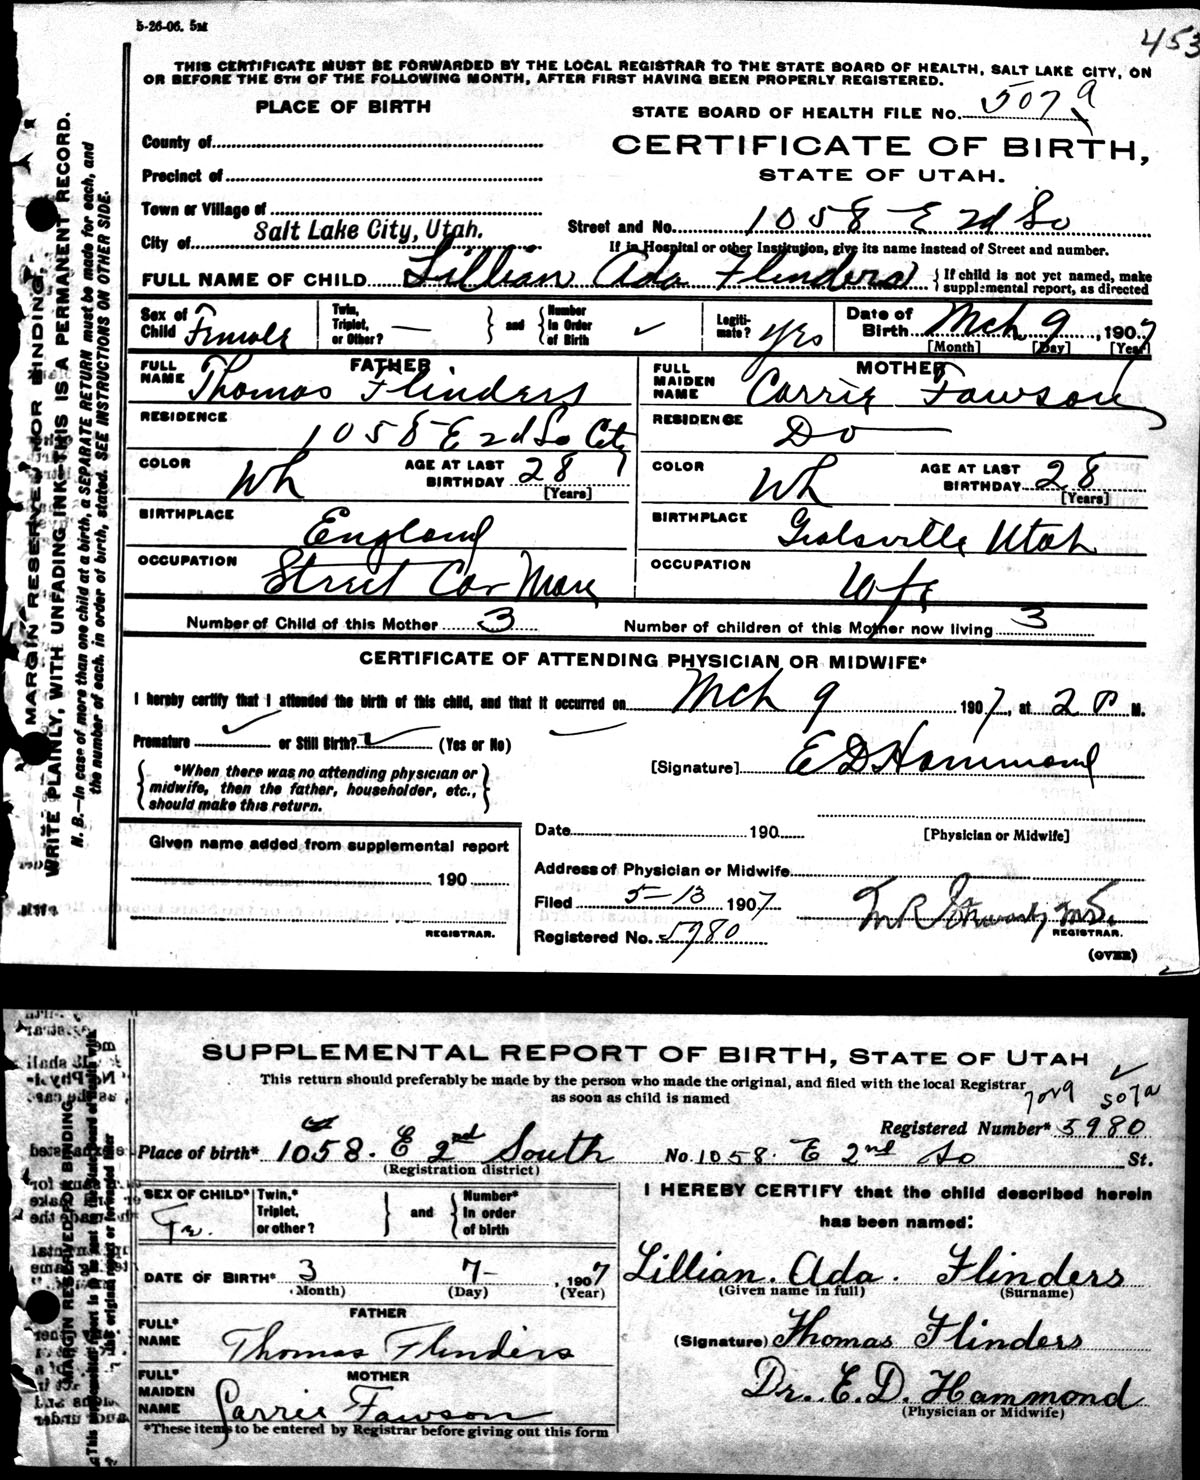 5-26-06. 5M
453
THIS CERTIFICATE MUST BE FORWARDED BY THE LOCAL REGISTRAR TO THE STATE BOARD OF HEALTH, SALT LAKE CITY, ON
OR BEFORE THE 5TH OF THE FOLLOWING MONTH, AFTER FIRST HAVING BEEN PROPERLY REGISTERED.
PLACE OF BIRTH
STATE BOARD OF HEALTH FILE NO. 507a
County of
CERTIFICATE OF BIRTH,
Precinct of
STATE OF UTAH.
Town or Village of
City of Salt Lake City, Utah.
Street and No. 1058 E 2d So
If in Hospital or other Institution, give its name instead of Street and number.
FULL NAME OF CHILD Lillian Ada Flinders { If child is not yet named, make
supplemental report, as directed
Sex of Child Female
Twin, Triplet, or Other? — } and { Number In Order of Birth ✓
Legitimate? Yes
Date of Birth Mch 9, 1907
[Month] [Day] [Year]
FATHER
FULL NAME Thomas Flinders
RESIDENCE 1058 E 2d So City
COLOR Wh AGE AT LAST BIRTHDAY 28
[Years]
BIRTHPLACE England
OCCUPATION Street Car Man
MOTHER
FULL MAIDEN NAME Carrie Fawson
RESIDENCE Do
COLOR Wh AGE AT LAST BIRTHDAY 28
[Years]
BIRTHPLACE Utah
OCCUPATION Wife
Number of Child of this Mother 3 Number of children of this Mother now living 3
CERTIFICATE OF ATTENDING PHYSICIAN OR MIDWIFE*
I hereby certify that I attended the birth of this child, and that it occurred on Mch 9 1907, at 2 P M.
Premature ✓ or Still Birth? ✓ (Yes or No)
[Signature] E D Hammond
{ *When there was no attending physician or
midwife, then the father, householder, etc.,
should make this return. }
[Physician or Midwife]
Date 190
Given name added from supplemental report
190
REGISTRAR.
Address of Physician or Midwife
Filed 5-13 1907
Registered No. 5980
REGISTRAR.
(OVER)
MARGIN RESERVED FOR BINDING.
WRITE PLAINLY, WITH UNFADING INK—THIS IS A PERMANENT RECORD.
N. B.—In case of more than one child at a birth, a SEPARATE RETURN must be made for each, and
the number of each, in order of birth, stated. SEE INSTRUCTIONS ON OTHER SIDE.
SUPPLEMENTAL REPORT OF BIRTH, STATE OF UTAH
This return should preferably be made by the person who made the original, and filed with the local Registrar
as soon as child is named
507a
Registered Number* 5980
Place of birth* 1058. E 2nd South No. 1058. E 2nd So St.
(Registration district)
SEX OF CHILD* Twin,* Triplet, or other? } and { Number* In order of birth
DATE OF BIRTH* 3 7 — , 1907
(Month) (Day) (Year)
FATHER
FULL* NAME Thomas Flinders
MOTHER
FULL* MAIDEN NAME Carrie Fawson
*These items to be entered by Registrar before giving out this form
I HEREBY CERTIFY that the child described herein
has been named:
Lillian. Ada. Flinders
(Given name in full) (Surname)
(Signature) Thomas Flinders
Dr. E. D. Hammond
(Physician or Midwife)
MARGIN RESERVED FOR BINDING